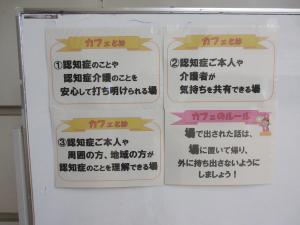 カフェとは
①認知症のことや
認知症介護のことを
安心して打ち明けられる場
カフェとは
②認知症ご本人や
介護者が
気持ちを共有できる場
カフェとは
③認知症ご本人や
周囲の方、地域の方が
認知症のことを理解できる場
カフェのルール
場で出された話は、
場に置いて帰り、
外に持ち出さないように
しましょう！